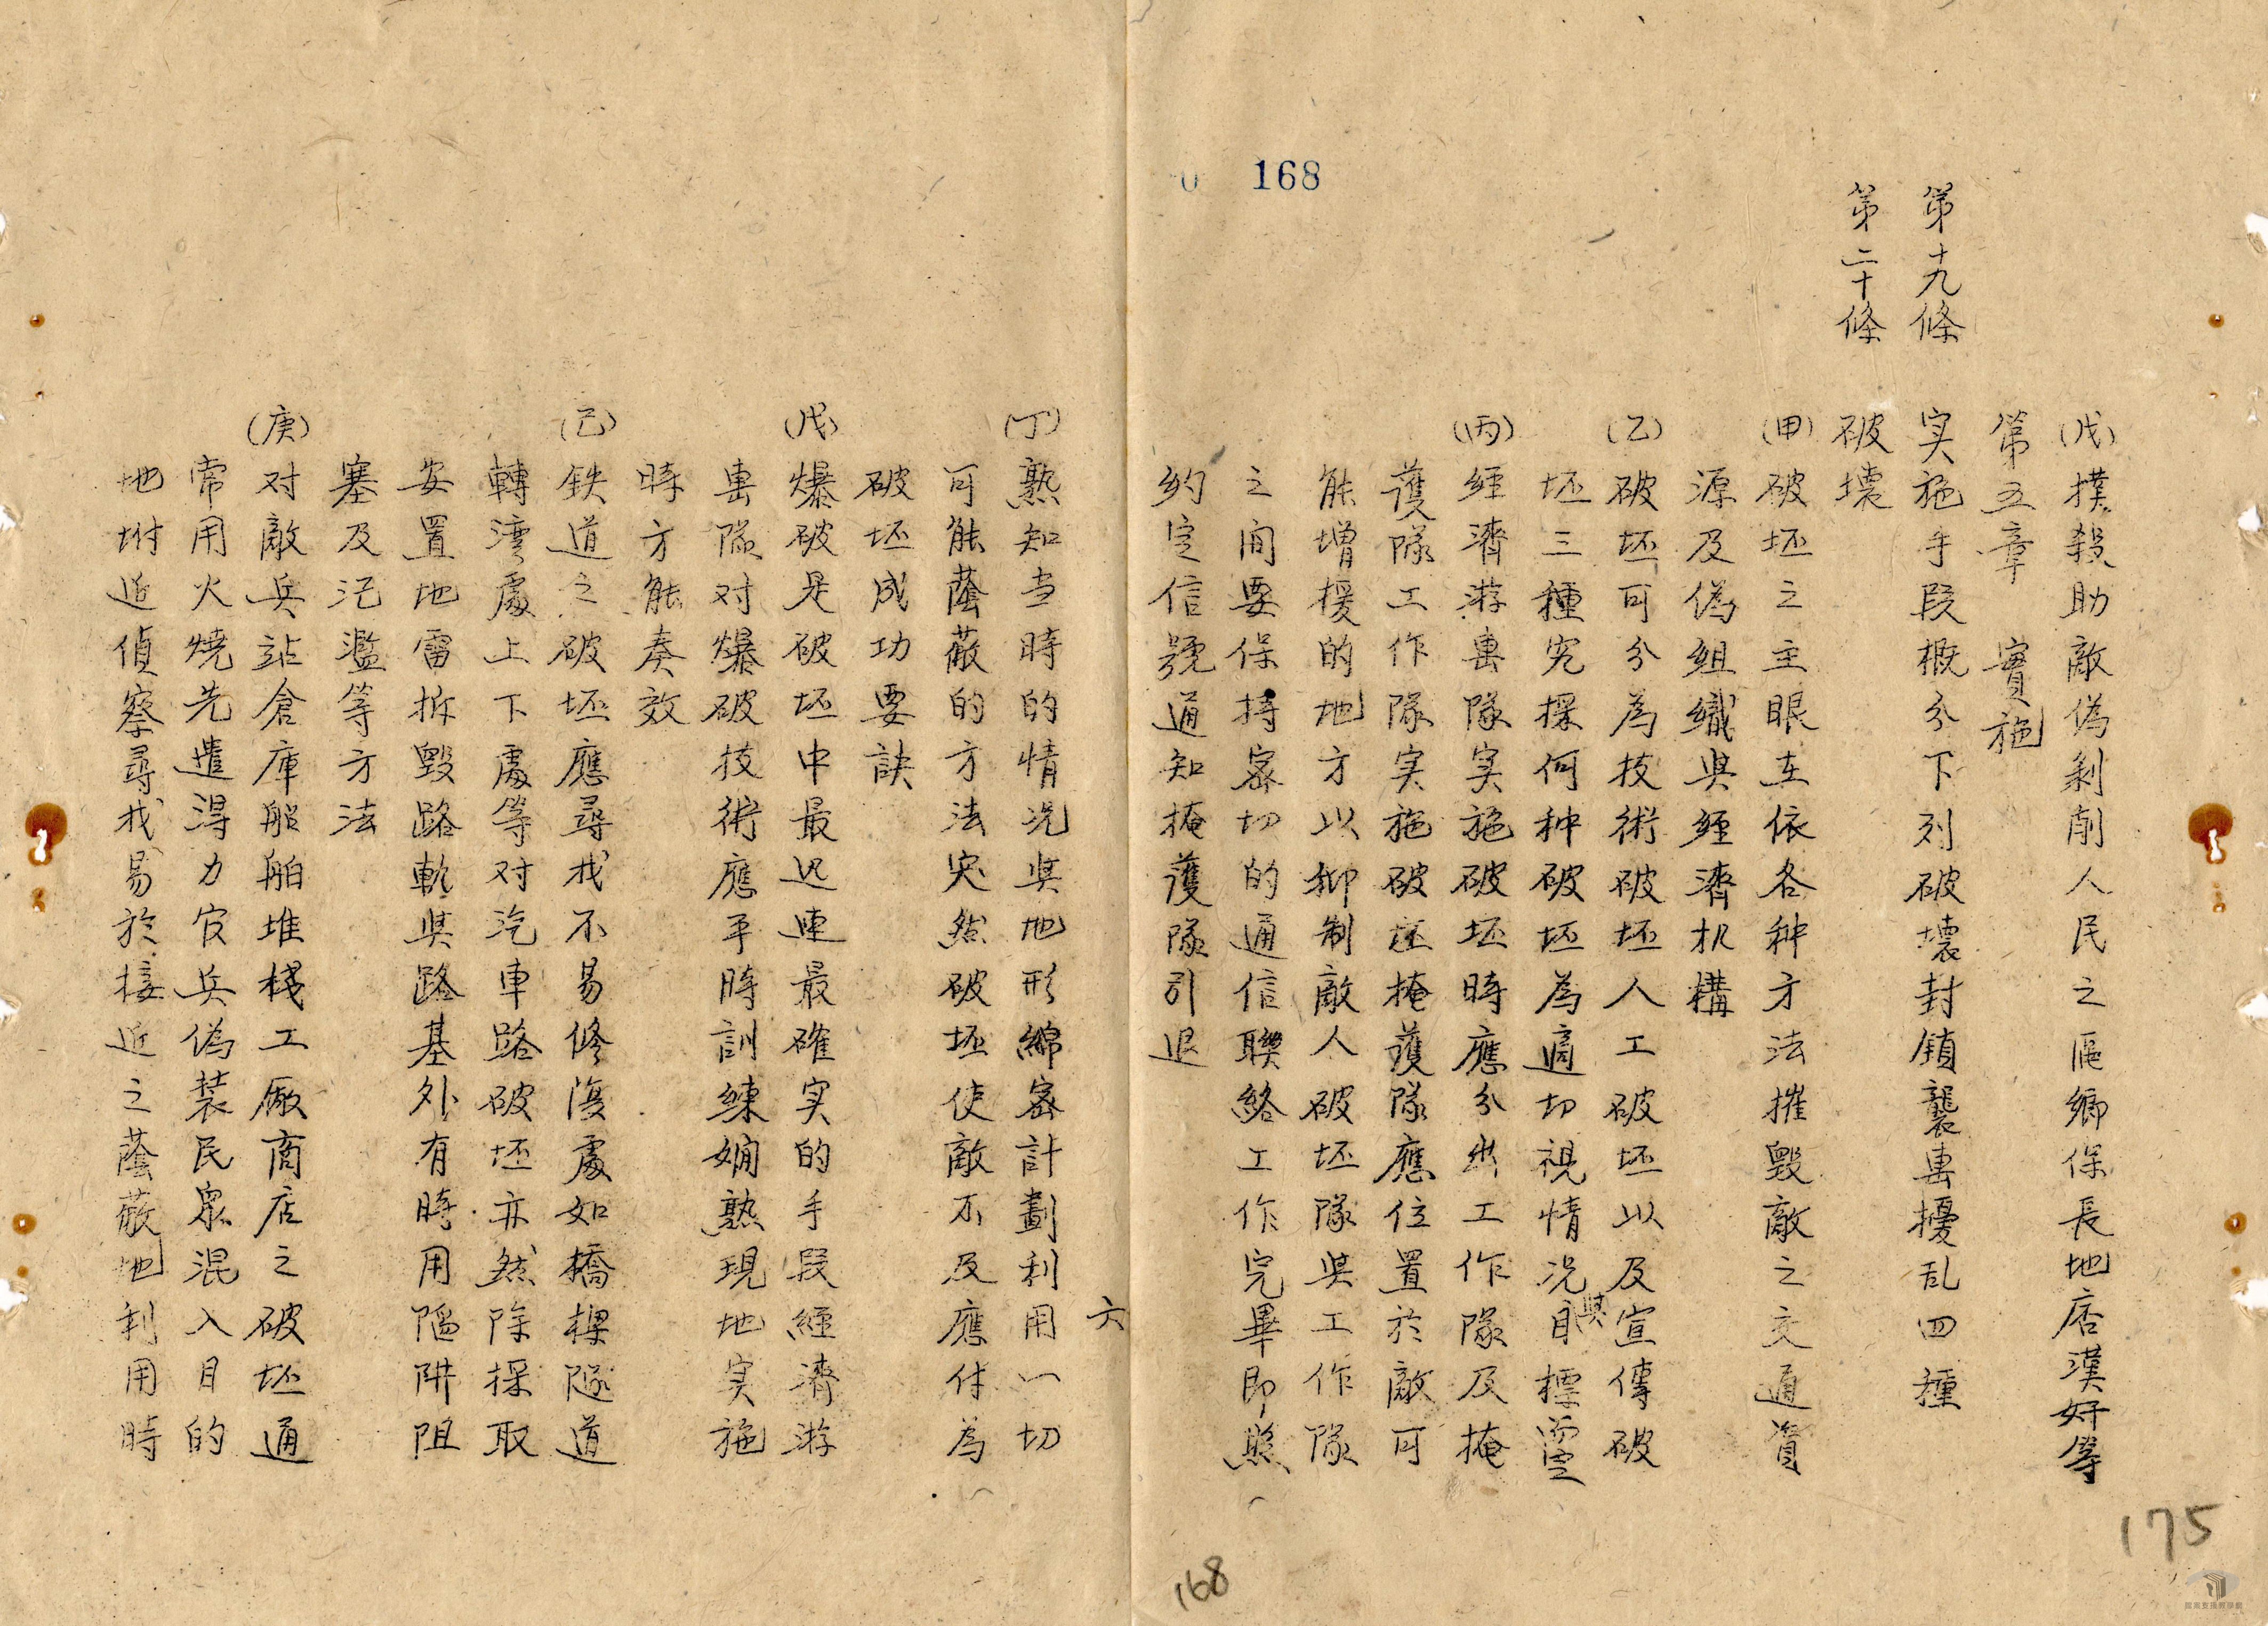 168
(戊)撲殺助敵偽剝削人民之區鄉保長地痞漢奸等
第五章 實施
第十九條 実施手段概分下列破壞封鎖襲击擾乱四種
第二十條 破壞
(甲)破坯之主眼在依各种方法摧毀敵之交通資
源及偽組織与經濟机構
(乙)破坯可分為技術破坯人工破坯以及宣傳破
坯三種究採何种破坯為適切視情況與目標而定
(丙)經濟游击隊実施破坯時應分出工作隊及掩
護隊工作隊実施破坯掩護隊應位置於敵可
能增援的地方以抑制敵人破坯隊與工作隊
之间要保持密切的通信聯絡工作完畢即照
約定信號通知掩護隊引退
六
(丁)熟知当時的情况與地形綿密計劃利用一切
可能蔭蔽的方法突然破坯使敵不及應付為
破坯成功要訣
(戊)爆破是破坯中最迅速最確实的手段經濟游
击隊对爆破技術應平時訓練嫻熟現地実施
時方能奏效
(己)鉄道之破坯應尋找不易修復處如橋樑隧道
轉湾處上下處等对汽車路破坯亦然除採取
安置地雷拆毀路軌與路基外有時用陷阱阻
塞及氾濫等方法
(庚)对敵兵站倉庫船舶堆棧工廠商店之破坯通
常用火燒先遣得力官兵偽装民眾混入目的
地坿近偵察尋找易於接近之蔭蔽地利用時
168
175